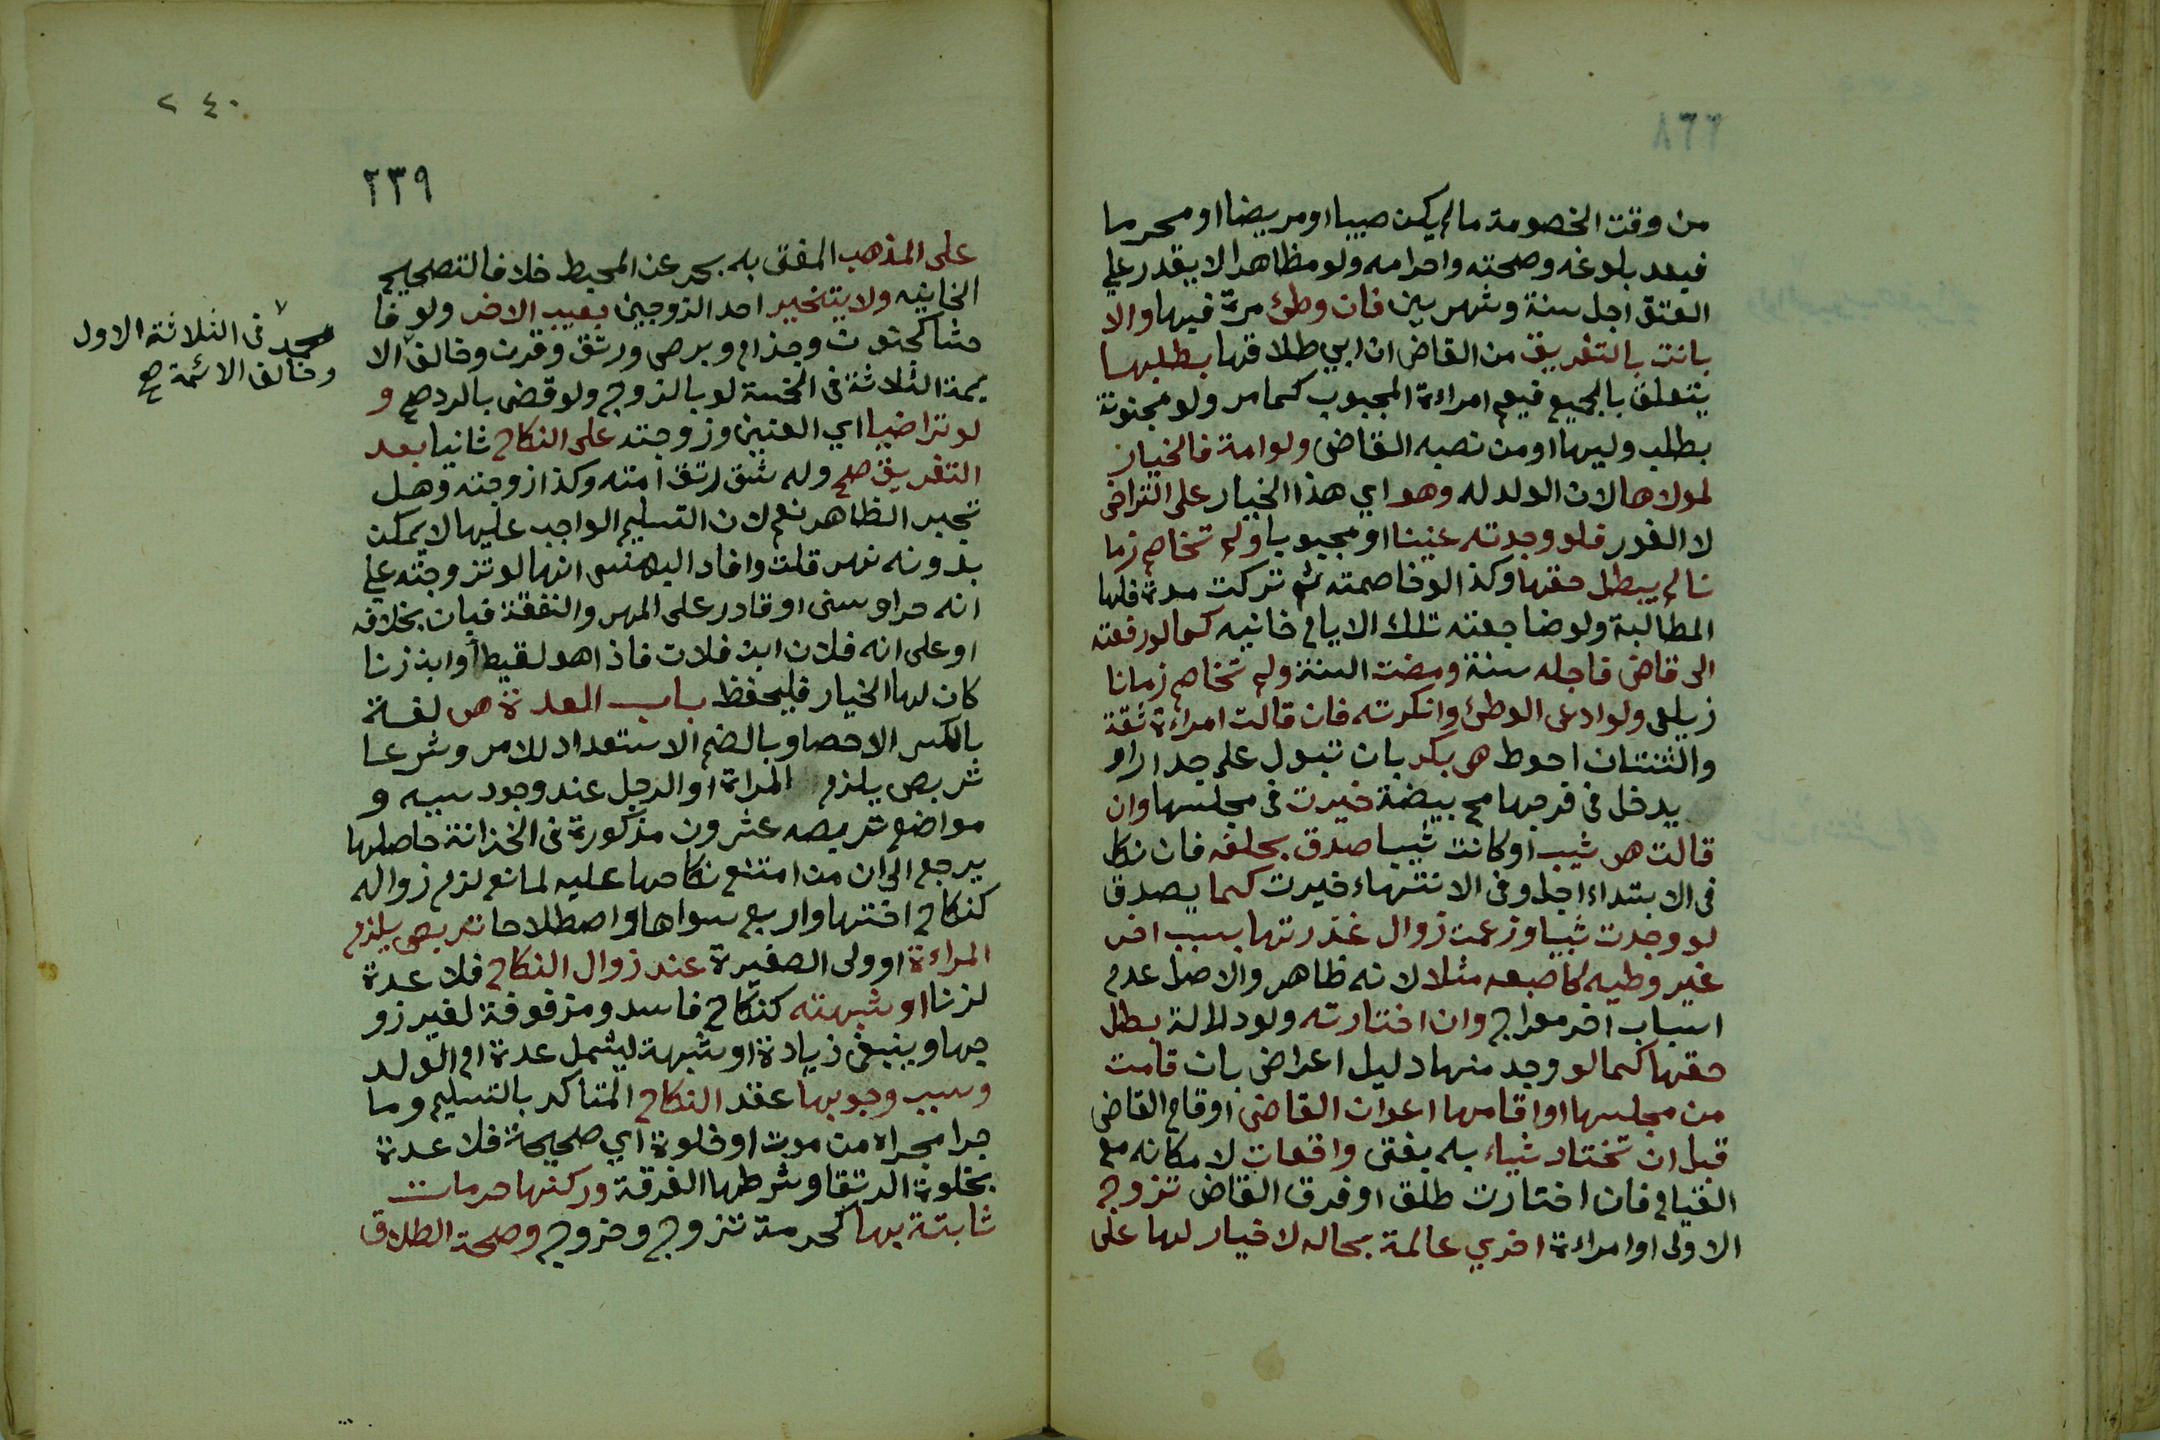 من وقت الخصومة مالم يكن صبيا او مريضا او محرما
فبعد بلوغه وصحته واحرامه ولو مظاهرا لا يقدر على
العتق اجل سنة وشهرين فان وطئ مرة فيها والا
بانت بالتفريق من القاض ان ابي طلاقها بطلبها
يتعلق بالجميع فيعم امراءة المجبوب كما مر ولو مجنونة
بطلب وليها او من نصبه القاضى ولو امة فالخيار
لمولاها لان الولد له وهو اي هذا الخيار على التراخى
لا الفور فلو وجدته عنينا او مجبوبا ولم تخاصم زما
نا لم يبطل حقها وكذا لو خاصمته ثم تركت مدة فلها
المطالبة ولو ضاجعته تلك الايام خانيه كما لو رفعته
الى قاض فاجله سنة ومضت السنة ولم تخاصم زمانا
زيلعى ولو ادعى الوطئ وانكرته فان قالت امراءة ثقة
والثنتان احوط هى بكر بان تبول على جدار او
يدخل فى فرجها مح بيضة خيرت فى مجلسها وان
قالت هى ثيب او كانت ثيبا صدق بحلفه فان نكل
فى الابتداء اجل وفى الانتهاء خيرت كما يصدق
لو وجدت ثيبا وزعمت زوال عذرتها بسبب اخر
غير وطيه كاصبعه مثلا لانه ظاهر والاصل عدم
اسباب اخر معراج وان اختارته ولو دلالة بطل
حقها كما لو وجد منها دليل اعراض بان قامت
من مجلسها او اقامها اعوان القاضى او قام القاضى
قبل ان تختار شياء به يفتى واقعات لامكانه مع
القيام فان اختارت طلق او فرق القاض تزوج
الاولى او امراءة اخري عالمة بحاله لا خيار لها على
٢٤٠
٢٣٩
على المذهب المفتى به بحر عن المحيط خلافا لتصحيح
الخانيه ولا يتخير احد الزوجين بعيب الاخر ولو فا
حشا كجنون وجذام وبرص ورتق وقرن وخالف الا
يمة الثلاثة فى الخمسة لو بالزوج ولو قضى بالرد صح و
لو تراضيا اي العنين وزوجته على النكاح ثانيا بعد
التفريق صح وله شق رتق امته وكذا زوجته وهل
تجبر الظاهر نعم لان التسليم الواجب عليها لا يمكن
بدونه نهر قلت وافاد البهنسى انها لو تزوجته على
انه حر او سنى او قادر على المهر والنفقة فبان بخلافه
او على انه فلان ابن فلان فاذا هو لقيط او ابن زنا
كان لها الخيار فليحفظ باب العدة هى لغة
بالكسر الاحصا وبالضم الاستعداد للامر وشرعا
تربص يلزم المراة او الرجل عند وجود سببه و
مواضع تربصه عشرون مذكورة فى الخزانة حاصلها
يرجع الى ان من امتنع نكاحها عليه لمانع لزم زواله
كنكاح اختها واربع سواها واصطلاحا تربص يلزم
المراءة او ولى الصغيرة عند زوال النكاح فلا عدة
لزنا او شبهته كنكاح فاسد ومزفوفة لغير زو
جها وينبغى زيادة او شبهة ليشمل عدة ام الولد
وسبب وجوبها عقد النكاح المتاكد بالتسليم وما
جرا مجراه من موت او خلوة اي صحيحة فلا عدة
بخلوة الرتقا وشرطها الفرقة وركنها حرمات
ثابتة بها كحرمة تزوج وخروج وصحة الطلاق
محمد فى الثلاثة الاول
وخالف الائمة صح